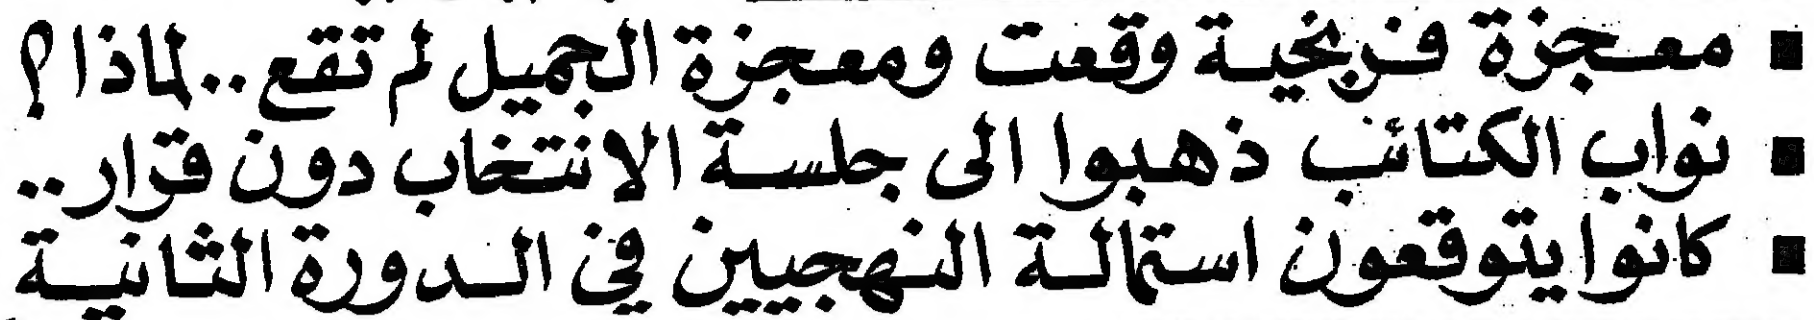 ■ معجزة فرنجية وقعت ومعجزة الجميل لم تقع .. لماذا ؟
■ نواب الكتائب ذهبوا الى جلسة الانتخاب دون قرار ..
■ كانوا يتوقعون استمالة النهجيين في الدورة الثانية